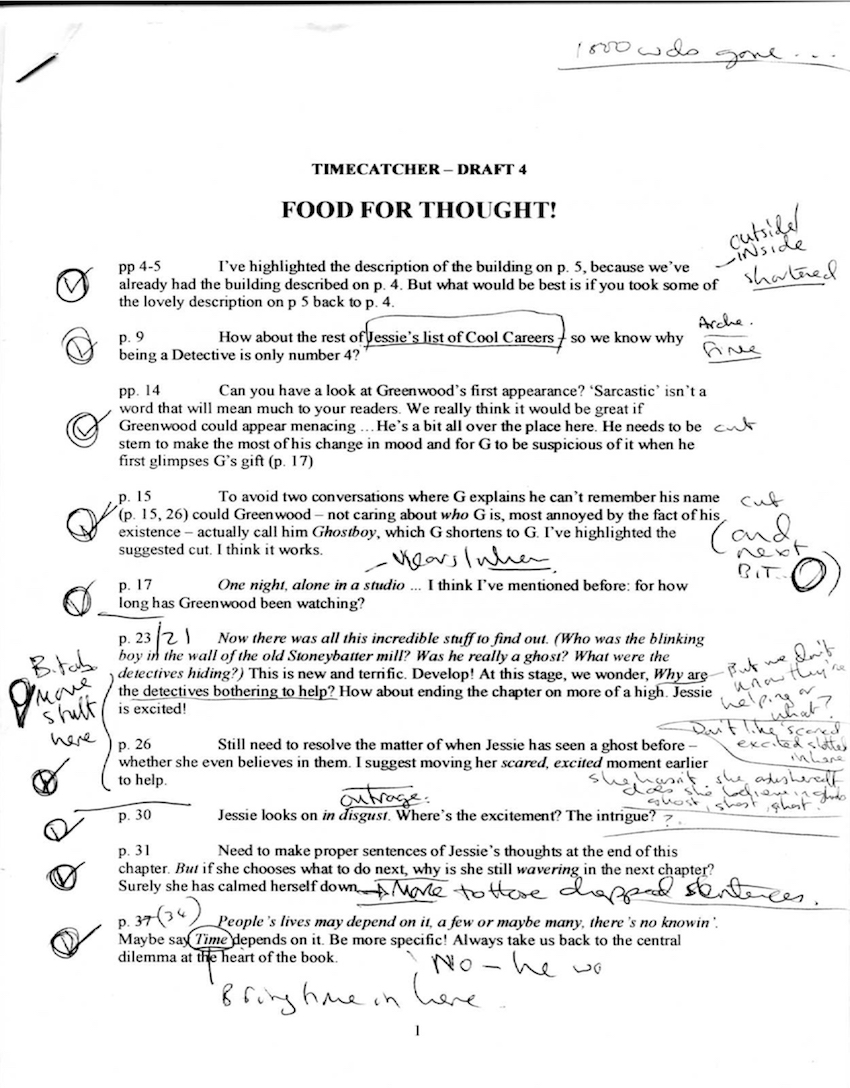 1800 wds gone...
TIMECATCHER – DRAFT 4
FOOD FOR THOUGHT!
outside/
inside
shortened
pp 4-5 I've highlighted the description of the building on p. 5, because we've
already had the building described on p. 4. But what would be best is if you took some of
the lovely description on p 5 back to p. 4.
p. 9 How about the rest of Jessie's list of Cool Careers – so we know why
being a Detective is only number 4?
Fire
pp. 14 Can you have a look at Greenwood's first appearance? 'Sarcastic' isn't a
word that will mean much to your readers. We really think it would be great if
Greenwood could appear menacing …He's a bit all over the place here. He needs to be
cut
stern to make the most of his change in mood and for G to be suspicious of it when he
first glimpses G's gift (p. 17)
p. 15 To avoid two conversations where G explains he can't remember his name
cut
(p. 15, 26) could Greenwood – not caring about who G is, most annoyed by the fact of his
existence – actually call him Ghostboy, which G shortens to G. I've highlighted the
suggested cut. I think it works.
(and
next
BIT...
)
– Years/when
p. 17 One night, alone in a studio ... I think I've mentioned before: for how
long has Greenwood been watching?
p. 23 /21 Now there was all this incredible stuff to find out. (Who was the blinking
boy in the wall of the old Stoneybatter mill? Was he really a ghost? What were the
detectives hiding?) This is new and terrific. Develop! At this stage, we wonder, Why are
the detectives bothering to help? How about ending the chapter on more of a high. Jessie
is excited!
But we don't
know they're
helping or
what?
move
stuff
here
Don't like 'scared
excited' slotted
in here
p. 26 Still need to resolve the matter of when Jessie has seen a ghost before –
whether she even believes in them. I suggest moving her scared, excited moment earlier
to help.
she hasn't she asks herself
does she believe in ghosts
ghost, ghost, ghost.
outrage.
p. 30 Jessie looks on in disgust. Where's the excitement? The intrigue? ?
p. 31 Need to make proper sentences of Jessie's thoughts at the end of this
chapter. But if she chooses what to do next, why is she still wavering in the next chapter?
Surely she has calmed herself down.
chopped sentences.
p. 37 (34) People's lives may depend on it, a few or maybe many, there's no knowin'.
Maybe say Time depends on it. Be more specific! Always take us back to the central
dilemma at the heart of the book.
No – he wo
Bring time in here.
1